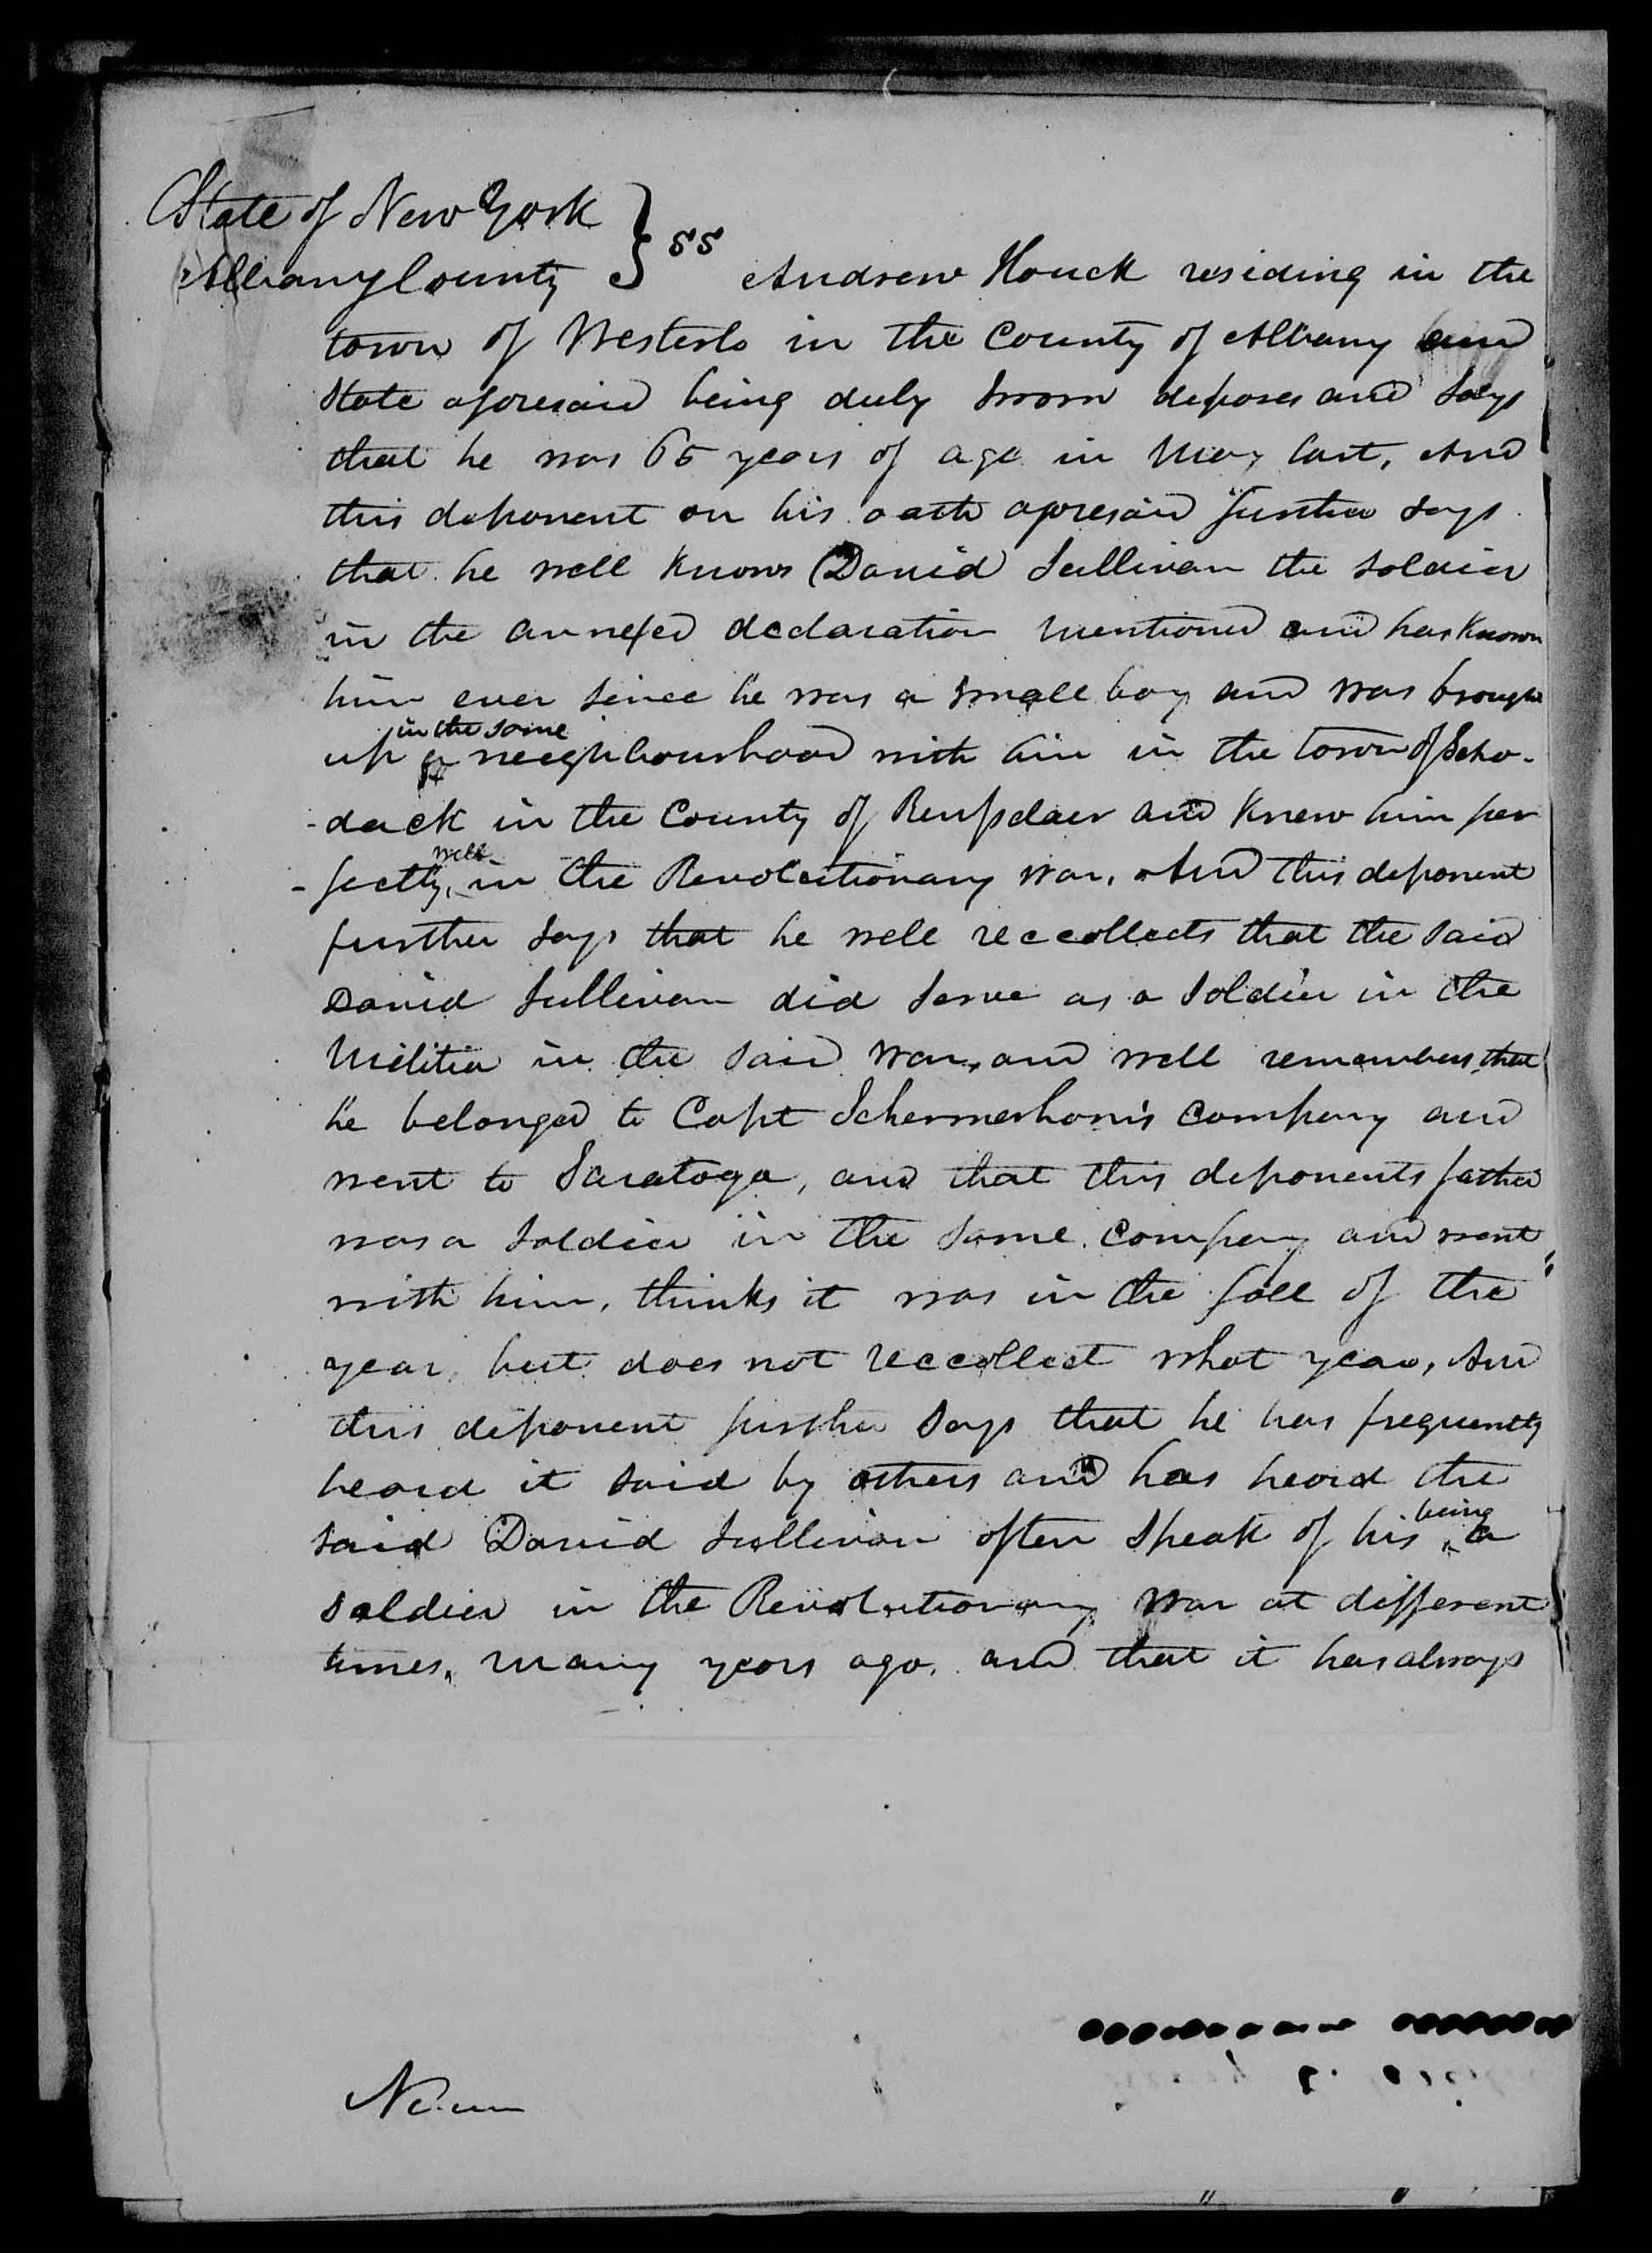 State of New York
Albany County } SS Andrew Houck residing in the
town of Westerlo in the County of Albany and
State aforesaid being duly sworn deposes and says
that he was 65 years of age in May last, And
this deponent on his oath aforesaid further says
that he well knows David Sullivan the soldier
in the annexed declaration mentioned and has known
him ever since he was a small boy and was brought
up in the same neighbourhood with him in the town of Scho-
-dack in the County of Rensselaer and knew him per
-fectly well in the Revolutionary war. And this deponent
further says that he well reccollects that the said
David Sullivan did serve as a soldier in the
Militia in the said war, and well remembers that
he belonged to Capt Schermerhorn's company and
went to Saratoga, and that this deponents father
was a soldier in the same company and went
with him, thinks it was in the fall of the
year but does not reccollect what year, And
this deponent further says that he has frequently
heard it said by others and has heard the
said David Sullivan often speak of his being a
soldier in the Revolutionary war at different
times, many years ago, and that it has always